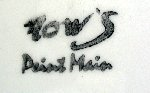 Row's
Point Main